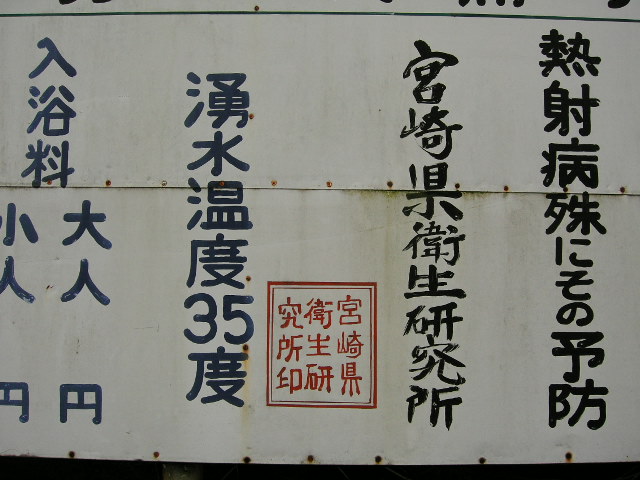 熱射病殊にその予防
宮崎県衛生研究所
宮崎県
衛生研
究所印
湧水温度35度
入浴料
大人 円
小人 円